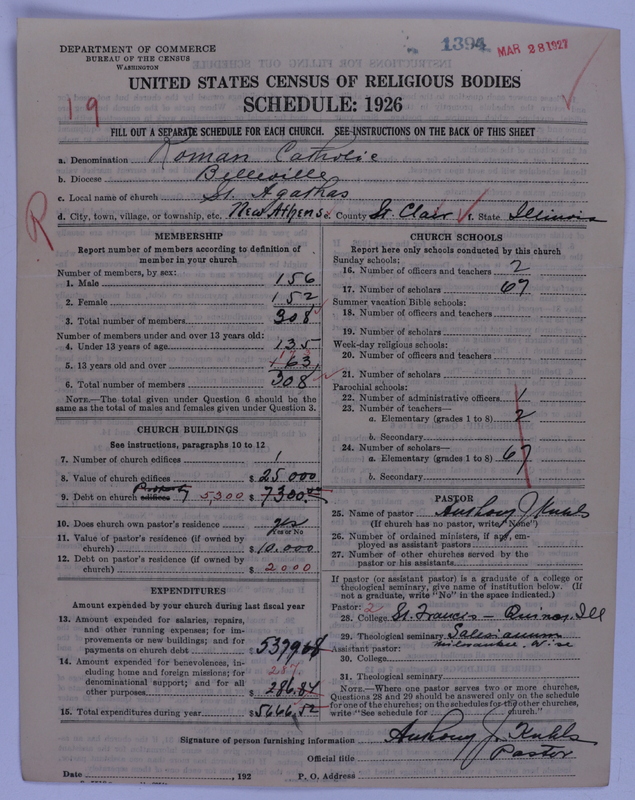 1394 MAR 28 1927
DEPARTMENT OF COMMERCE
BUREAU OF THE CENSUS
WASHINGTON
UNITED STATES CENSUS OF RELIGIOUS BODIES
SCHEDULE: 1926
19
FILL OUT A SEPARATE SCHEDULE FOR EACH CHURCH. SEE INSTRUCTIONS ON THE BACK OF THIS SHEET
a. Denomination Roman Catholic
b. Diocese Belleville
c. Local name of church St. Agathas
d. City, town, village, or township, etc. New Athens e. County St. Clair f. State Illinois
R
MEMBERSHIP
Report number of members according to definition of
member in your church
Number of members, by sex:
1. Male 156
2. Female 152
3. Total number of members 308
Number of members under and over 13 years old:
4. Under 13 years of age 135
5. 13 years old and over
6. Total number of members 308
NOTE.—The total given under Question 6 should be the
same as the total of males and females given under Question 3.
CHURCH BUILDINGS
See instructions, paragraphs 10 to 12
7. Number of church edifices 1
8. Value of church edifices $ 25000
9. Debt on church edifices Property 5,300 $ 7300
10. Does church own pastor's residence yes
Yes or No
11. Value of pastor's residence (if owned by
church) $ 10.000
12. Debt on pastor's residence (if owned by
church) $ 2000
EXPENDITURES
Amount expended by your church during last fiscal year
13. Amount expended for salaries, repairs,
and other running expenses; for im-
provements or new buildings; and for
payments on church debt $ 5379.68
14. Amount expended for benevolences, in-
cluding home and foreign missions; for 287
denominational support; and for all
other purposes $ 286.84
15. Total expenditures during year $ 5666.52
CHURCH SCHOOLS
Report here only schools conducted by this church
Sunday schools:
16. Number of officers and teachers 2
17. Number of scholars 67
Summer vacation Bible schools:
18. Number of officers and teachers
19. Number of scholars
Week-day religious schools:
20. Number of officers and teachers
21. Number of scholars
Parochial schools:
22. Number of administrative officers 1
23. Number of teachers—
a. Elementary (grades 1 to 8) 2
b. Secondary
24. Number of scholars—
a. Elementary (grades 1 to 8) 67
b. Secondary
PASTOR
25. Name of pastor Anthony J. Kuhls
(If church has no pastor, write "None")
26. Number of ordained ministers, if any, em-
ployed as assistant pastors
27. Number of other churches served by the
pastor or his assistants
If pastor (or assistant pastor) is a graduate of a college or
theological seminary, give name of institution below. (If
not a graduate, write "No" in the space indicated.)
Pastor: 2
28. College St. Francis — Quincy, Ill
29. Theological seminary Salesianum
Milwaukee, Wisc
Assistant pastor:
30. College
31. Theological seminary
NOTE.—Where one pastor serves two or more churches,
Questions 28 and 29 should be answered only on the schedule
for one of the churches; on the schedules for the other churches,
write "See schedule for church."
Signature of person furnishing information Anthony J. Kuhls
Official title Pastor
Date , 192 P. O. Address